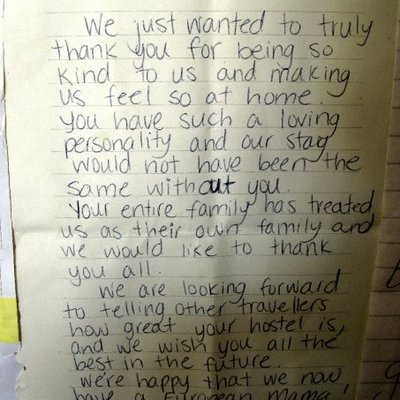 We just wanted to truly
thank you for being so
kind to us and making
us feel so at home.
You have such a loving
personality and our stay
would not have been the
same without you.
Your entire family has treated
us as their own family and
we would like to thank
you all.
We are looking forward
to telling other travellers
how great your hostel is,
and we wish you all the
best in the future.
We're happy that we now,
have a European mama